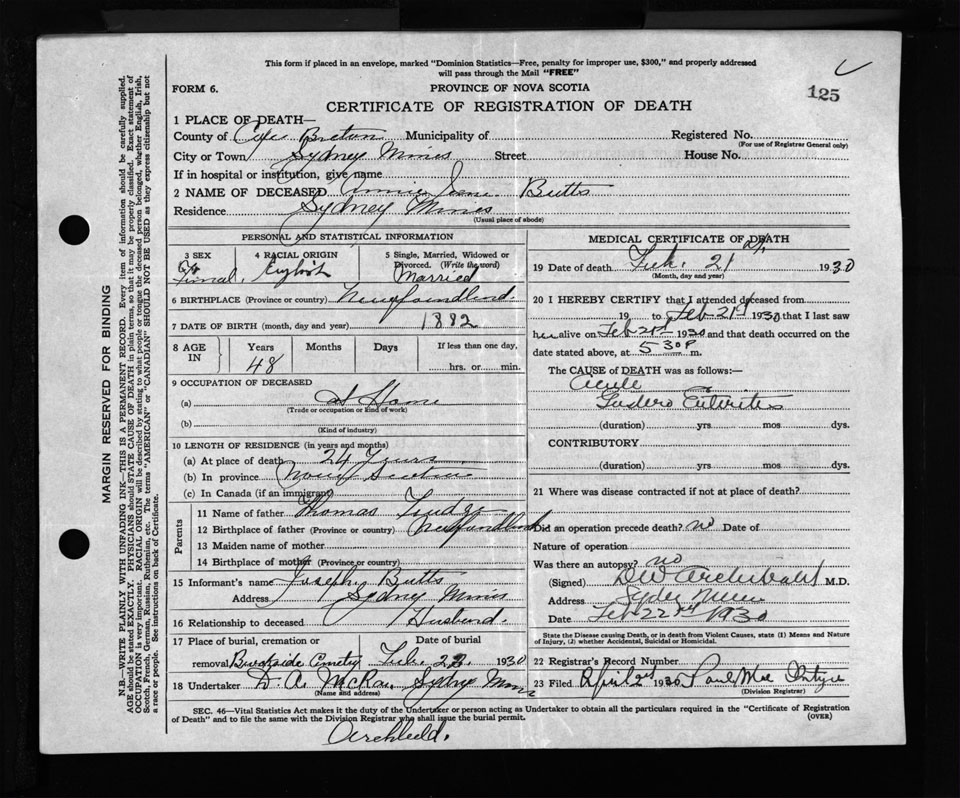 This form if placed in an envelope, marked "Dominion Statistics—Free, penalty for improper use, $300," and properly addressed
will pass through the Mail "FREE"
125
FORM 6.
PROVINCE OF NOVA SCOTIA
CERTIFICATE OF REGISTRATION OF DEATH
1 PLACE OF DEATH—
County of Cape Breton Municipality of Registered No.
(For use of Registrar General only)
City or Town Sydney Mines Street House No.
If in hospital or institution, give name
2 NAME OF DECEASED Annie Butts
Residence Sydney Mines
(Usual place of abode)
PERSONAL AND STATISTICAL INFORMATION
3 SEX 4 RACIAL ORIGIN 5 Single, Married, Widowed or
Divorced. (Write the word)
Femal. English Married
6 BIRTHPLACE (Province or country) Newfoundland.
7 DATE OF BIRTH (month, day and year) 1882
8 AGE IN Years Months Days If less than one day,
48 hrs. or min.
9 OCCUPATION OF DECEASED
(a) at Home
(Trade or occupation or kind of work)
(b)
(Kind of industry)
10 LENGTH OF RESIDENCE (in years and months)
(a) At place of death 24 Years
(b) In province Nova Scotia
(c) In Canada (if an immigrant)
Parents
11 Name of father Thomas
12 Birthplace of father (Province or country) Newfoundland
13 Maiden name of mother
14 Birthplace of mother (Province or country)
15 Informant's name Joseph Butts
Address Sydney Mines
16 Relationship to deceased Husband.
17 Place of burial, cremation or Date of burial
removal Brookside Cemetery Feb. 23, 1930
18 Undertaker D. A. McRae Sydney Mines
(Name and address)
MEDICAL CERTIFICATE OF DEATH
19 Date of death Feb. 21 1930
(Month, day and year)
20 I HEREBY CERTIFY that I attended deceased from
19 to Feb 21st 1930 that I last saw
her alive on Feb 21st 1930 and that death occurred on the
date stated above, at 5 30 P m.
The CAUSE of DEATH was as follows:—
Acute
Gastero
(duration) yrs. mos. dys.
CONTRIBUTORY
(duration) yrs. mos. dys.
21 Where was disease contracted if not at place of death?
Did an operation precede death? no Date of
Nature of operation
Was there an autopsy? no
(Signed) DW Archibald M.D.
Address Sydney Mines
Date Feb 22nd 1930
State the Disease causing Death, or in death from Violent Causes, state (1) Means and Nature
of Injury, (2) whether Accidental, Suicidal or Homicidal.
22 Registrar's Record Number
23 Filed April 2nd 1930
(Division Registrar)
SEC. 46—Vital Statistics Act makes it the duty of the Undertaker or person acting as Undertaker to obtain all the particulars required in the "Certificate of Registration
of Death" and to file the same with the Division Registrar who shall issue the burial permit.
(OVER)
Archibald.
MARGIN RESERVED FOR BINDING
N.B.—WRITE PLAINLY WITH UNFADING INK—THIS IS A PERMANENT RECORD. Every item of information should be carefully supplied.
AGE should be stated EXACTLY. PHYSICIANS should STATE CAUSE OF DEATH in plain terms, so that it may be properly classified. Exact statement of
OCCUPATION is very important. RACIAL ORIGIN will be described by stating to what people or tongue the deceased person belonged, whether English, Irish,
Scotch, French, German, Russian, Ruthenian, etc. The terms "AMERICAN" or "CANADIAN" SHOULD NOT BE USED as they express citizenship but not
a race or people. See instructions on back of Certificate.